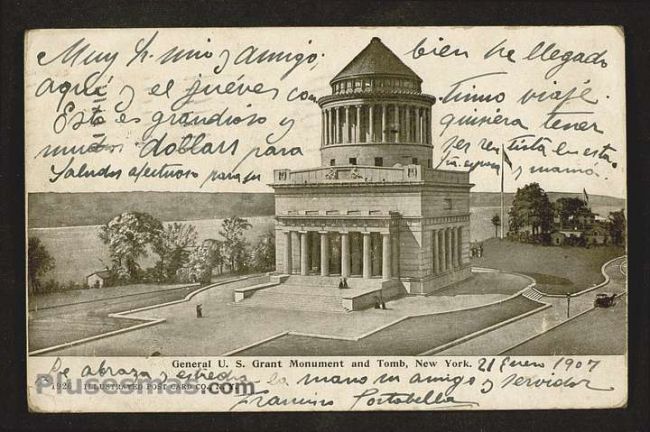 Muy h. mio y amigo, bien he llegado
aqui y el jueves continuo viaje.
Esto es grandioso y quisiera tener
muchos dollars para ser rentista en esta.
Saludos afectuosos para su y mamá
General U. S. Grant Monument and Tomb, New York. 21 Enero 1907
Le abraza y estrecha la mano su amigo y servidor
1926 ILLUSTRATED POST CARD CO., N. Y.
Plusesmas.com
Francisco Portabella